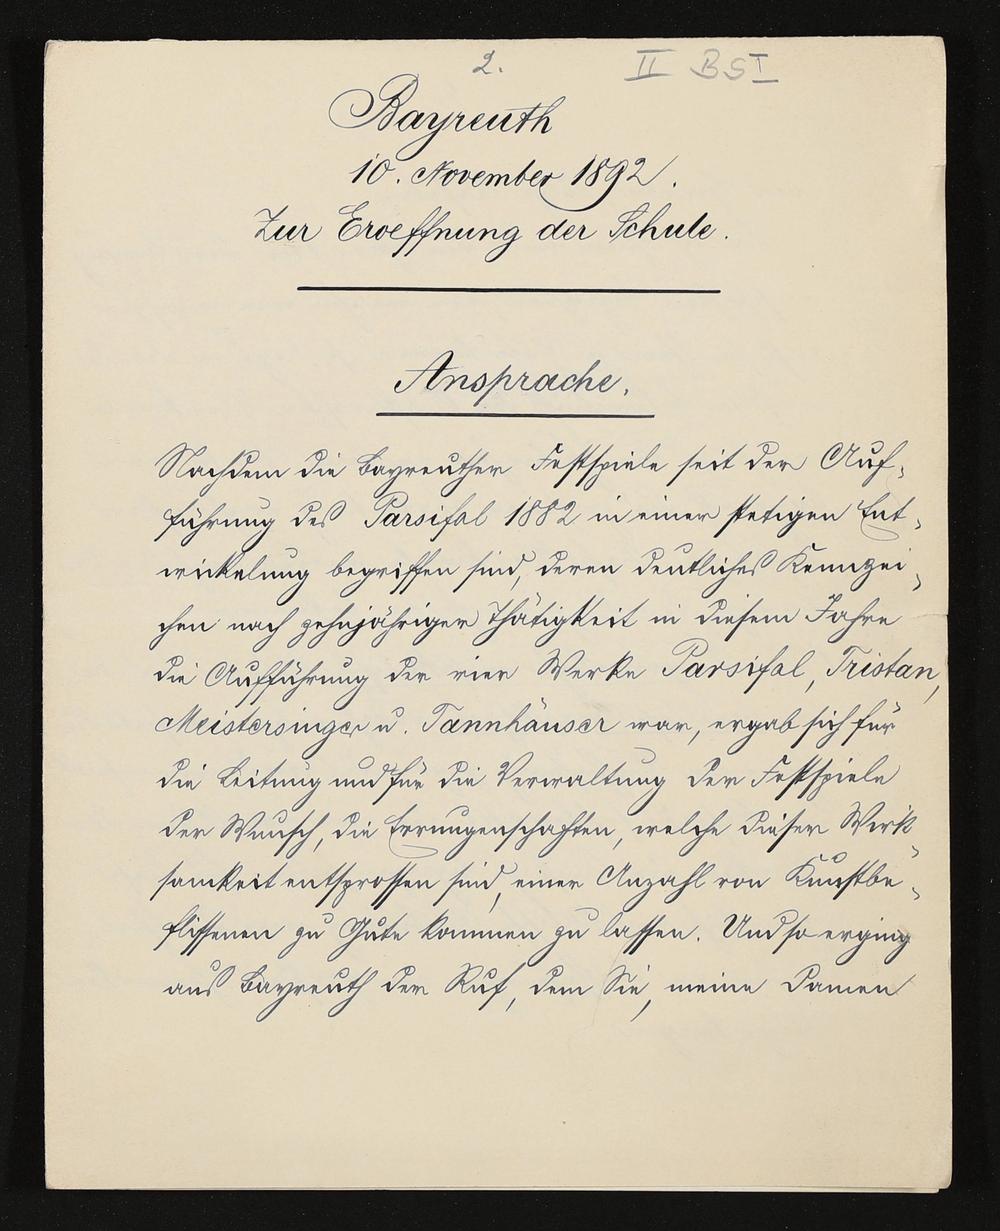 2. II BSI
Bayreuth
10. November 1892.
Zur Eroeffnung der Schule.
Ansprache.
Nachdem die Bayreuther Festspiele seit der Auf-
führung des Parsifal 1882 in einer stetigen Ent-
wickelung begriffen sind, deren deutliches Kennzei-
chen nach zehnjähriger Thätigkeit in diesem Jahre
die Aufführung der vier Werke Parsifal, Tristan,
Meistersinger u. Tannhäuser war, ergab sich für
die Leitung und für die Verwaltung der Festspiele
der Wunsch, die Errungenschaften, welche dieser Wirk-
samkeit entsprossen sind, einer Anzahl von Kunstbe-
flissenen zu Gute kommen zu lassen. Und so erging
aus Bayreuth der Ruf, dem Sie, meine Damen